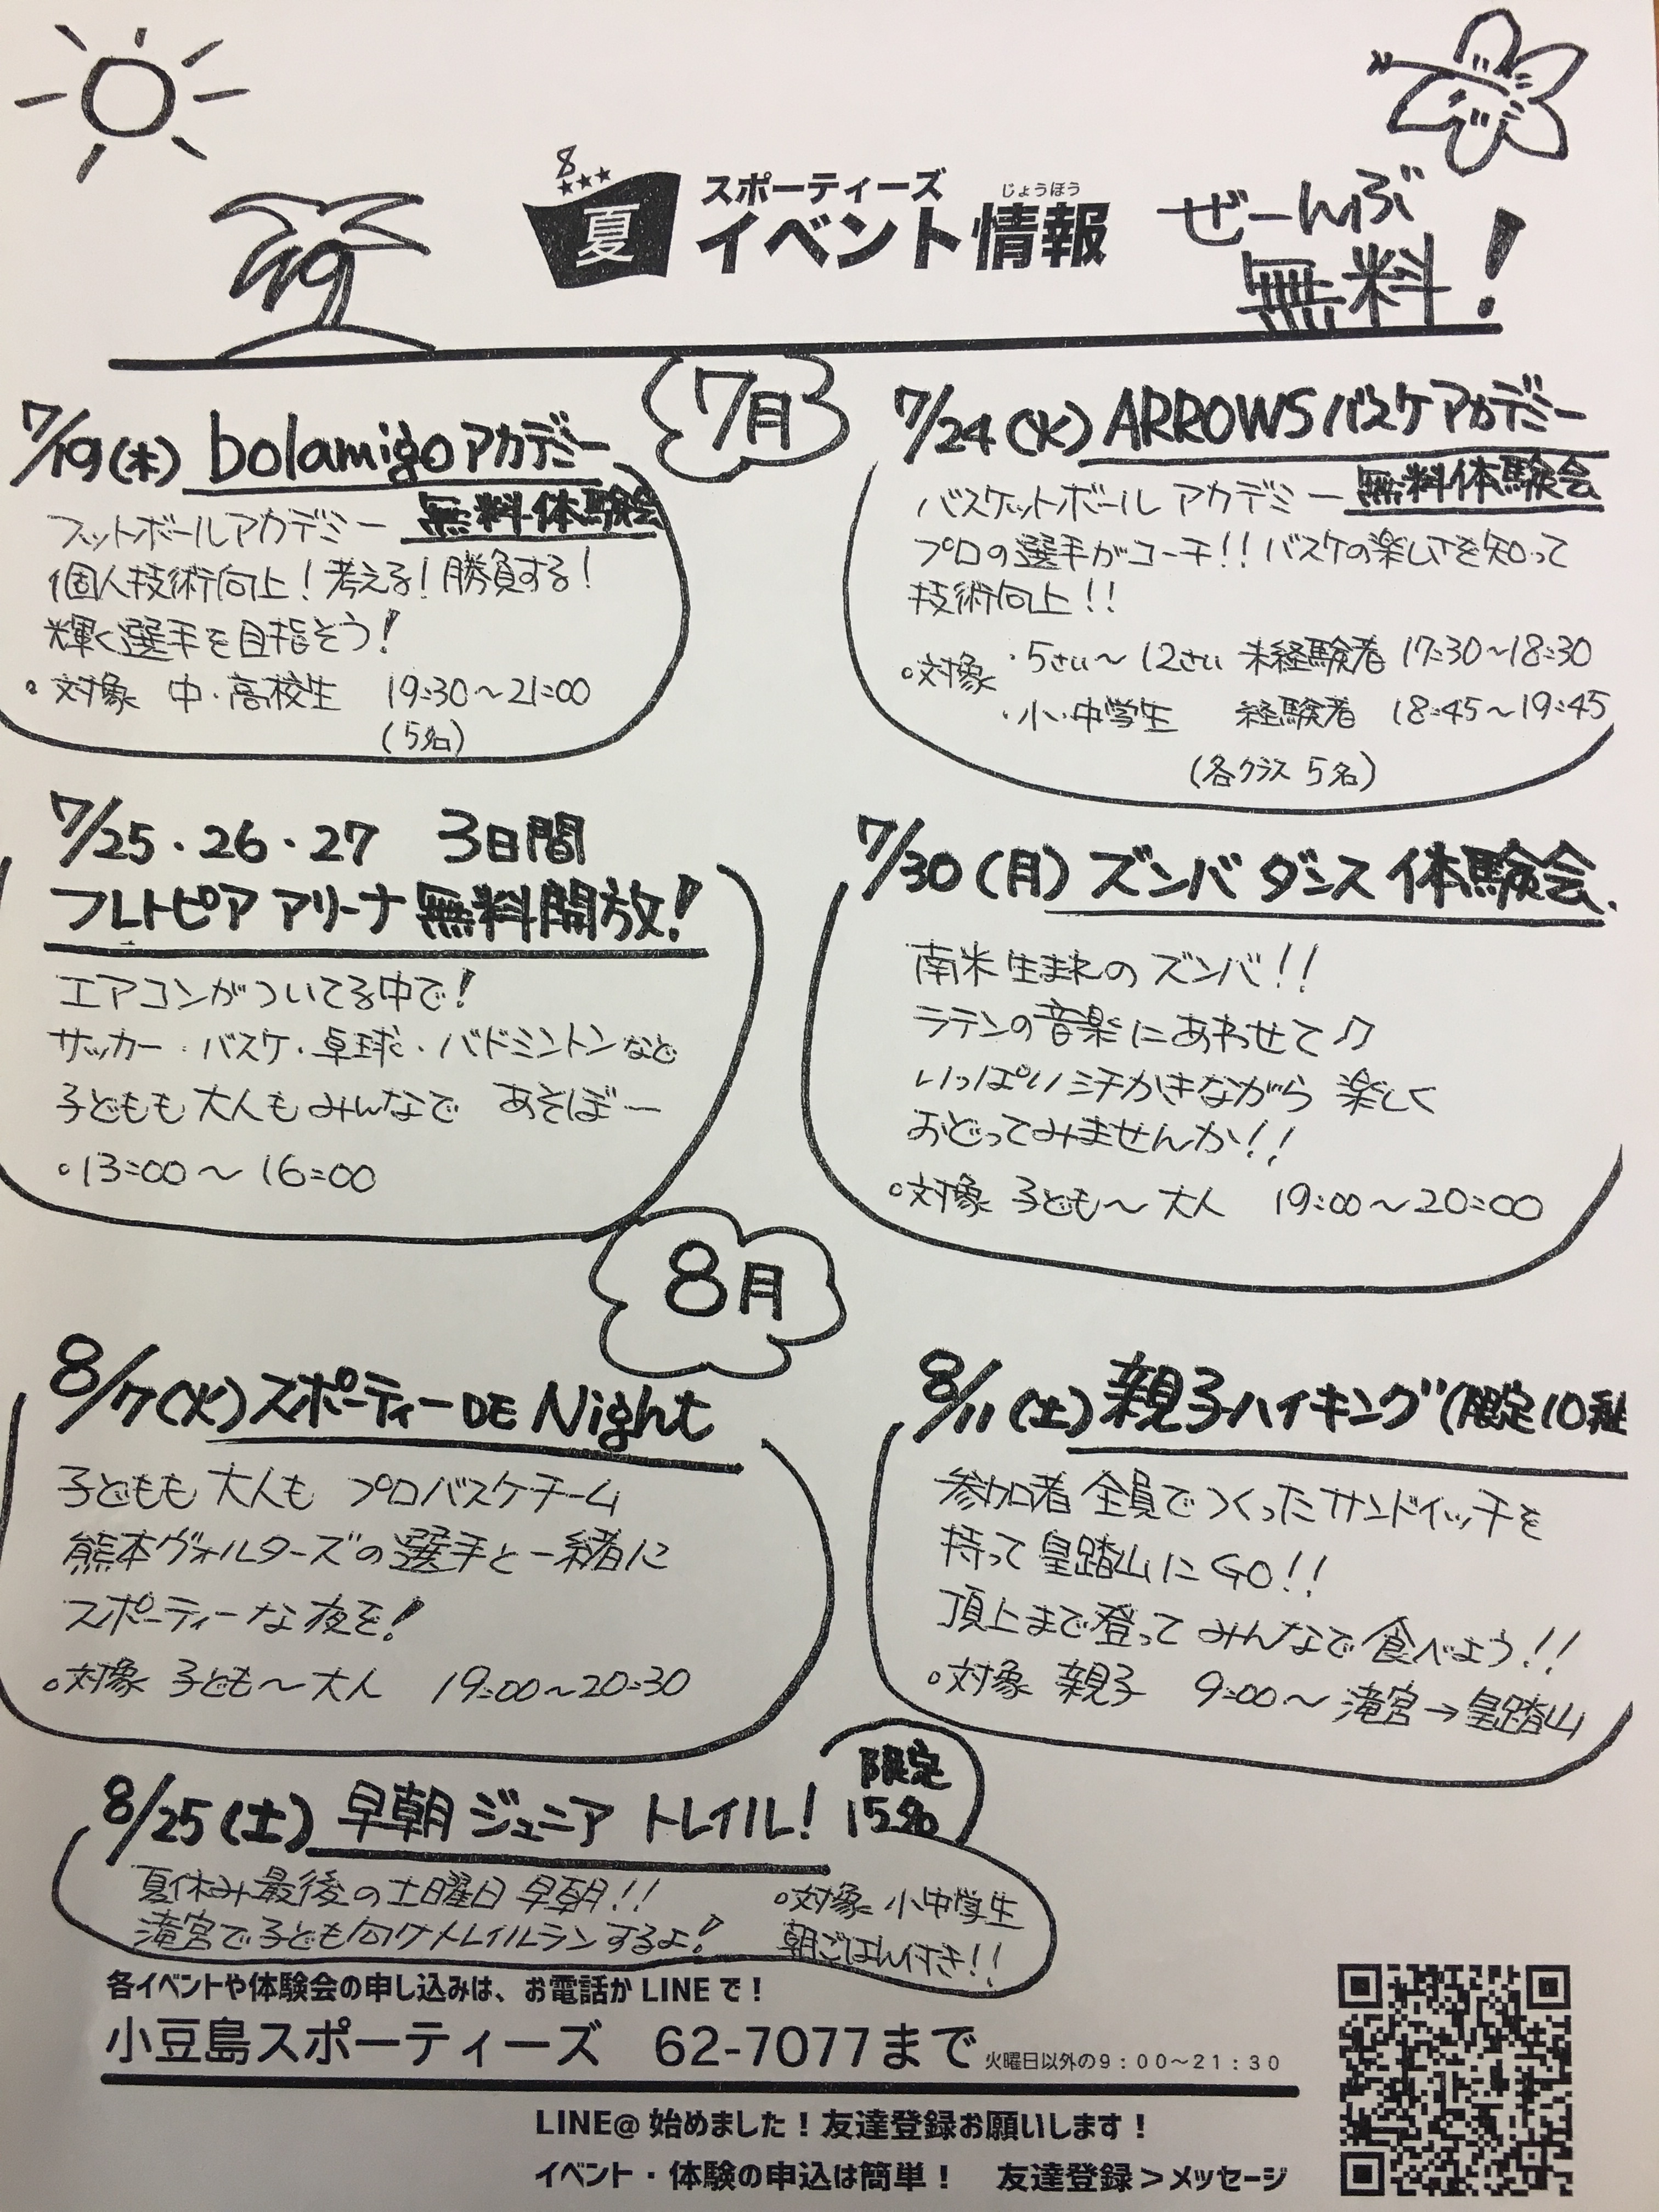 8
夏
スポーティーズ
じょうほう
イベント情報
ぜーんぶ
無料!
7月
7/19(木) bolamigoアカデミー
無料体験会
フットボールアカデミー
個人技術向上!考える!勝負する!
輝く選手を目指そう!
。対象 中・高校生 19:30~21:00
(5名)
7/24(火) ARROWSバスケアカデミー
無料体験会
バスケットボール アカデミー
プロの選手がコーチ!! バスケの楽しさを知って
技術向上!!
。対象
・5さい~12さい 未経験者 17:30~18:30
・小・中学生 経験者 18:45~19:45
(各クラス 5名)
7/25・26・27 3日間
フレトピア アリーナ 無料開放!
エアコンがついてる中で!
サッカー・バスケ・卓球・バドミントンなど
子どもも大人もみんなで あそぼー
。13:00~16:00
7/30(月) ズンバダンス体験会.
南米生まれの ズンバ!!
ラテンの音楽にあわせて♪
いっぱい汗かきながら 楽しく
おどってみませんか!!
。対象 子ども~大人 19:00~20:00
8月
8/7(火)スポーティーDE Night
子どもも大人も プロバスケチーム
熊本ヴォルターズの選手と一緒に
スポーティーな夜を!
。対象 子ども~大人 19:00~20:30
8/11(土) 親子ハイキング(限定10組
参加者全員でつくったサンドイッチを
持って皇踏山にGO!!
頂上まで登ってみんなで食べよう!!
。対象 親子 9:00~ 滝宮→皇踏山
8/25(土) 早朝 ジュニア トレイル!
限定
15名
夏休み最後の土曜日 早朝!!
滝宮で子ども向けトレイルランするよ!
。対象 小中学生
朝ごはん付き!!
各イベントや体験会の申し込みは、お電話か LINE で!
小豆島スポーティーズ 62-7077まで 火曜日以外の9:00~21:30
LINE@ 始めました!友達登録お願いします!
イベント・体験の申込は簡単! 友達登録>メッセージ